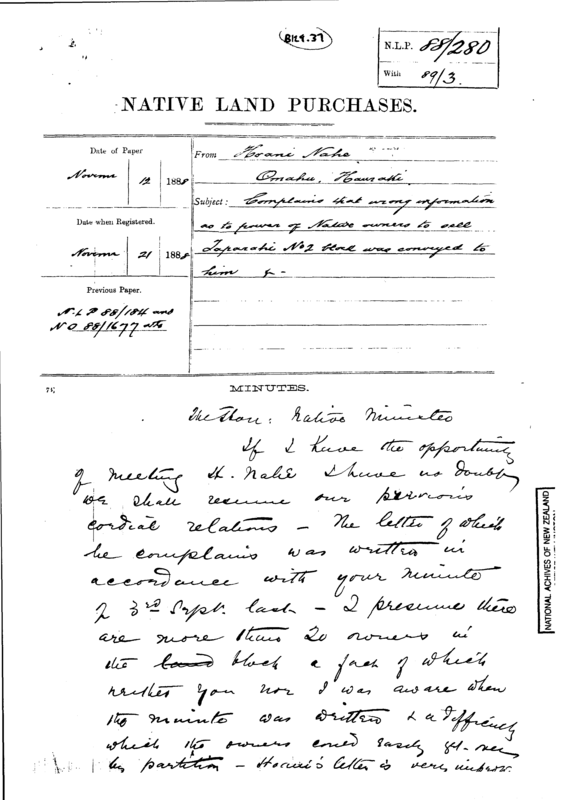 B129.37
N.L.P. 88/280
With 89/3.
NATIVE LAND PURCHASES.
Date of Paper
Novemr 12 1888
Date when Registered.
Novemr 21 1888
Previous Paper.
N.L.P 88/184 and
N O 88/1677
From Hoani Nahe
Omahu, Hauraki
Subject: Complains that wrong information
as to power of Native owners to sell
Taparahi No2 block was conveyed to
him &-
MINUTES.
The Hon: Native Minister
If I have the opportunity
of meeting H. Nahe I have no doubt
we shall resume our previous
cordial relations – The letter of which
he complains was written in
accordance with your minute
of 3rd Sept. last – I presume there
are more than 20 owners in
the land block a fact of which
neither you nor I was aware when
the minute was written & a difficulty
which the owners could easily get over
by partition – Hoani's letter is very
NATIONAL ARCHIVES OF NEW ZEALAND